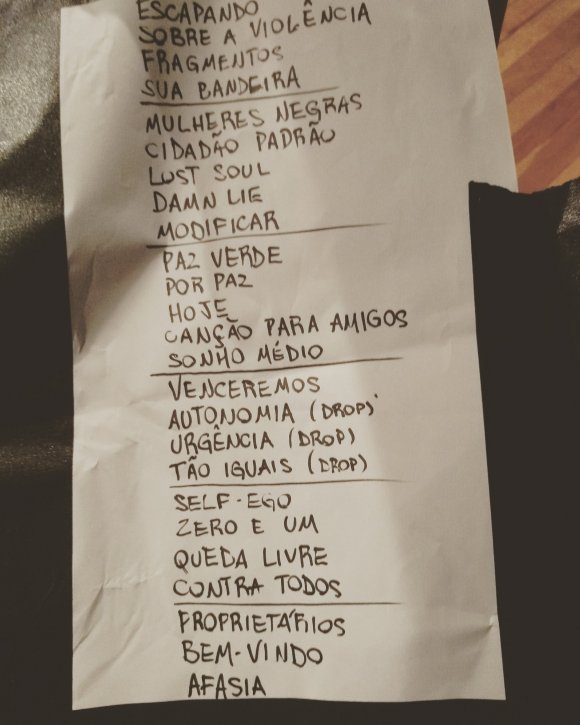 ESCAPANDO
SOBRE A VIOLÊNCIA
FRAGMENTOS
SUA BANDEIRA
MULHERES NEGRAS
CIDADÃO PADRÃO
LUST SOUL
DAMN LIE
MODIFICAR
PAZ VERDE
POR PAZ
HOJE
CANÇÃO PARA AMIGOS
SONHO MÉDIO
VENCEREMOS
AUTONOMIA (DROP)
URGÊNCIA (DROP)
TÃO IGUAIS (DROP)
SELF-EGO
ZERO E UM
QUEDA LIVRE
CONTRA TODOS
PROPRIETÁRIOS
BEM-VINDO
AFASIA